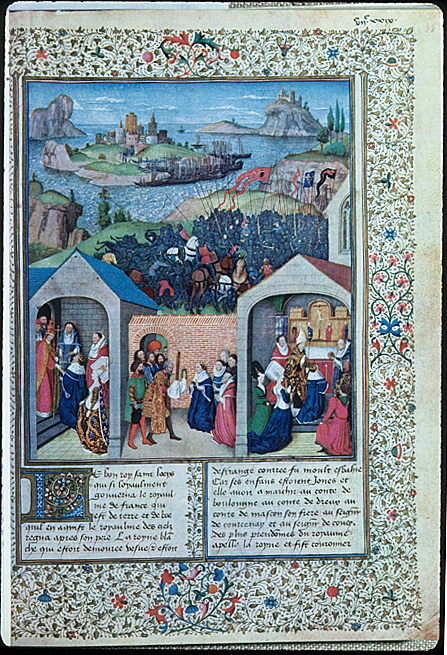 Le bon roy saint loeys
qui si loyaulment
gouverna le royaul
me de france qui
est de terre et de
quil en acquist le royaulme des
regna apres son pere La royne bla
che qui estoit demouree vesve et estoit
destrange contree fu moult esbahie
Car ses enfans estoient Jones et
elle avoit a marchir au conte de
bouloingne au conte de dreux au
conte de mascon son frere au seigneur
de courtenay et au seigneur de coucy
Des plus preudomes du royaume
apella la royne et fist couronner